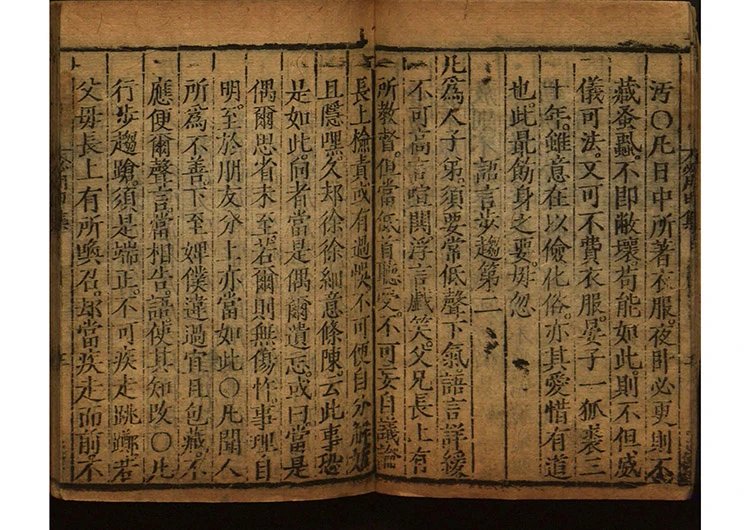 汚〇凡日中所著衣服夜卧必更則不
藏蚤蝨不即敝壞苟能如此則不但威
儀可法又可不費衣服晏子一狐裘三
十年雖意在以儉化俗亦其愛惜有道
也此最飭身之要毋忽
語言步趨第二
凡為人子弟須要常低聲下氣語言詳緩
不可高言喧鬨浮言戲笑父兄長上有
所教督但當低首聽受不可妄自議論
長上檢責或有過悞不可便自分解姑
且隱嘿久却徐徐細意條陳云此事恐
是如此向者當是偶爾遺忘或曰當是
偶爾思省未至若爾則無傷忤事理自
明至於朋友分上亦當如此〇凡聞人
所為不善下至婢僕違過宜且包藏不
應便爾聲言當相告語使其知改〇凡
行步趨蹌須是端正不可疾走跳躑若
父母長上有所喚召却當疾走而前不